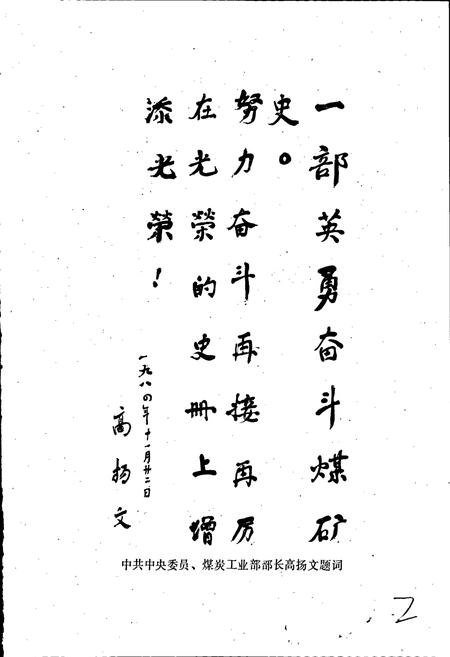 一部英勇奋斗煤矿
史。
努力奋斗再接再厉
在光荣的史册上增
添光荣！
一九八〇年十一月廿二日
高扬文
中共中央委员、煤炭工业部部长高扬文题词
2